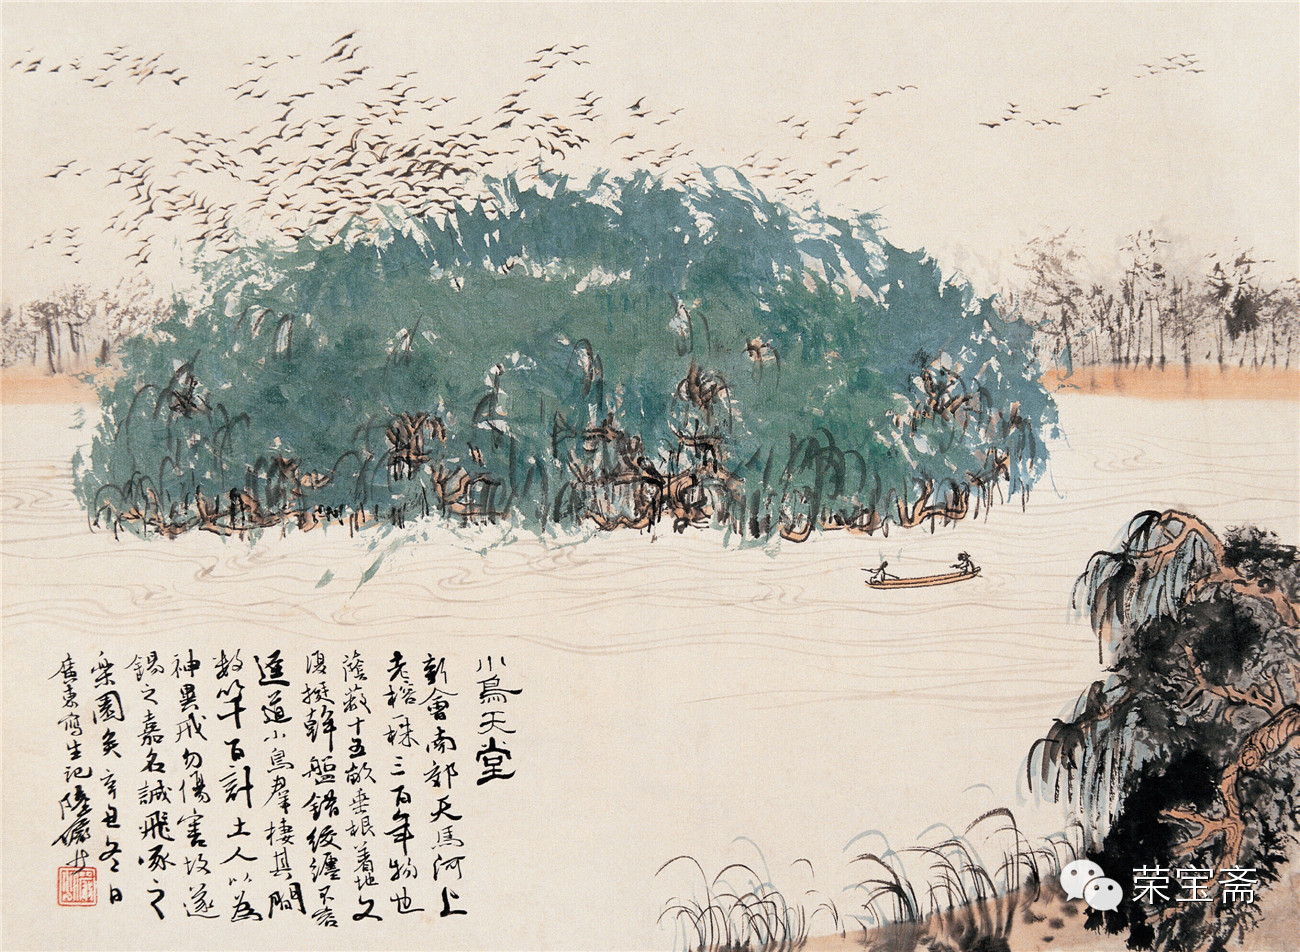 小鳥天堂
新會南郊天馬河上
老榕一株三百年物也
蔭蔽十五畝垂根着地又
復挺幹盤錯絞纏不容
逕道小鳥羣棲其間
數以千百計土人以為
神異戒勿傷害故遂
錫之嘉名誠飛啄之
樂園矣辛丑冬日
廣東寫生記陸儼少
荣宝斋